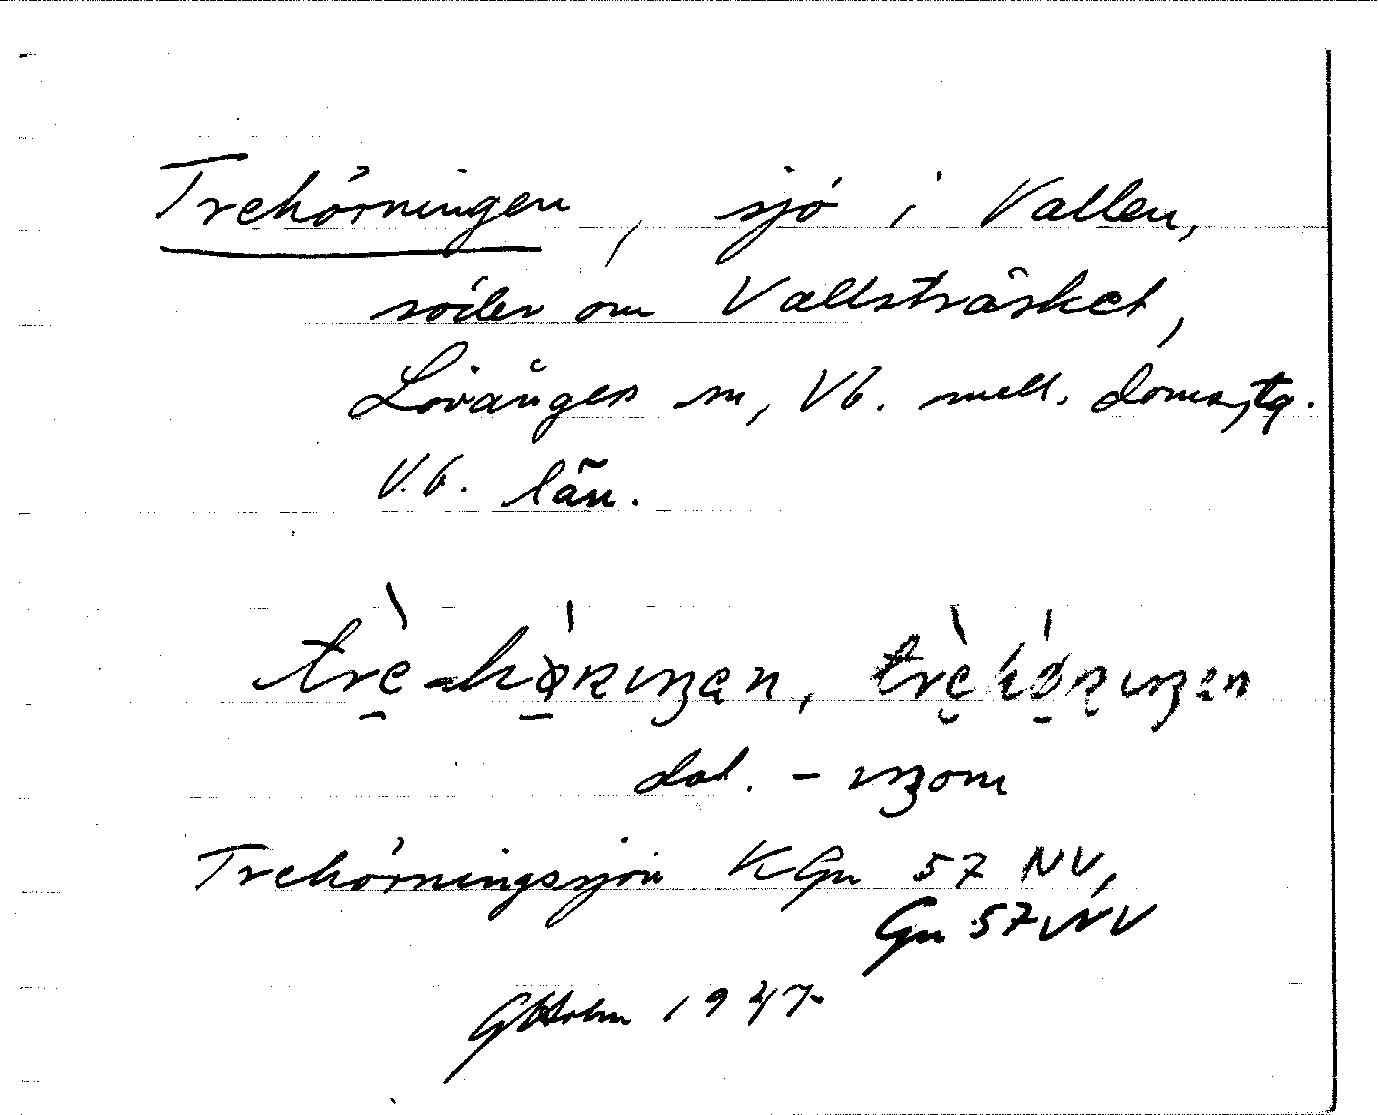 Trehörningen, sjö i Vallen,
söder om Vallsträsket,
Lövånger sn, Vb. mell. doms,tg.
V.b. län.
dat. - ıŋom
Trehörningssjön KGn 57 NV,
Gn 57 NV
GHolm 1947